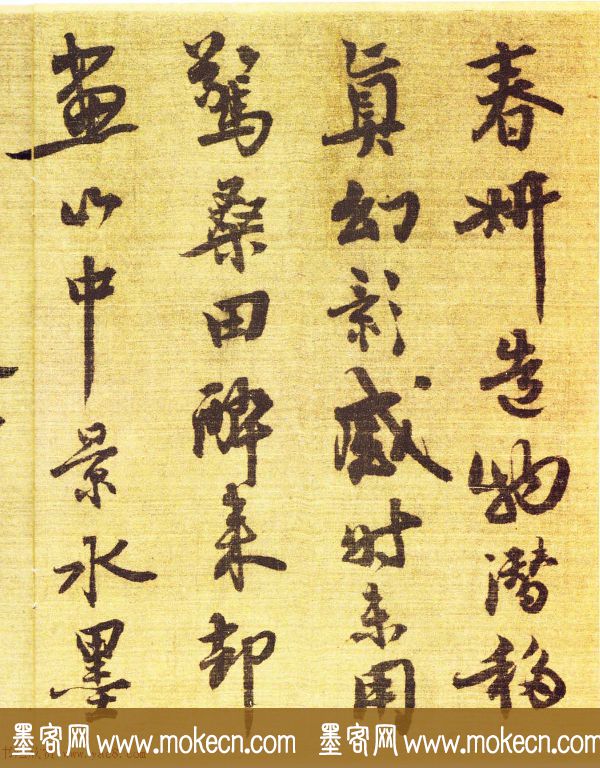 春妍造物潛移
眞幻影感時未用
驚桑田醉来却
畫山中景水墨
墨客网 www.mokecn.com 墨客网 www.mokecn.com